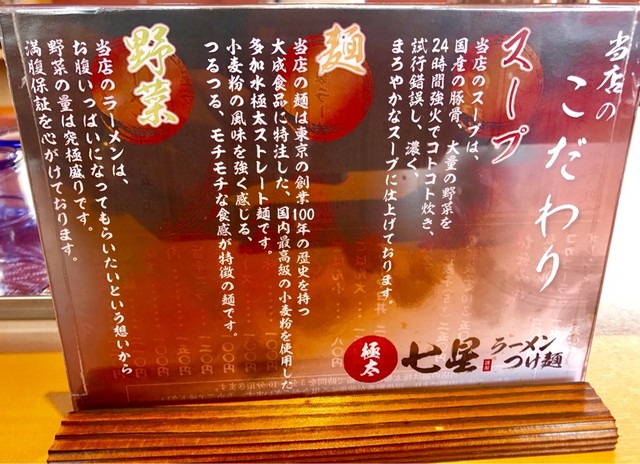 当店の
こだわり
スープ
当店のスープは、
国産の豚骨、大量の野菜を
24時間強火でコトコト炊き、
試行錯誤し、濃く、
まろやかなスープに仕上げております。
麺
当店の麺は東京の創業100年の歴史を持つ
大成食品に特注した、国内最高級の小麦粉を使用した
多加水極太ストレート麺です。
小麦粉の風味を強く感じる、
つるつる、モチモチな食感が特徴の麺です。
野菜
当店のラーメンは、
お腹いっぱいになってもらいたいという想いから
野菜の量は究極盛りです。
満腹保証を心がけております。
極太
七星
ラーメン
つけ麺